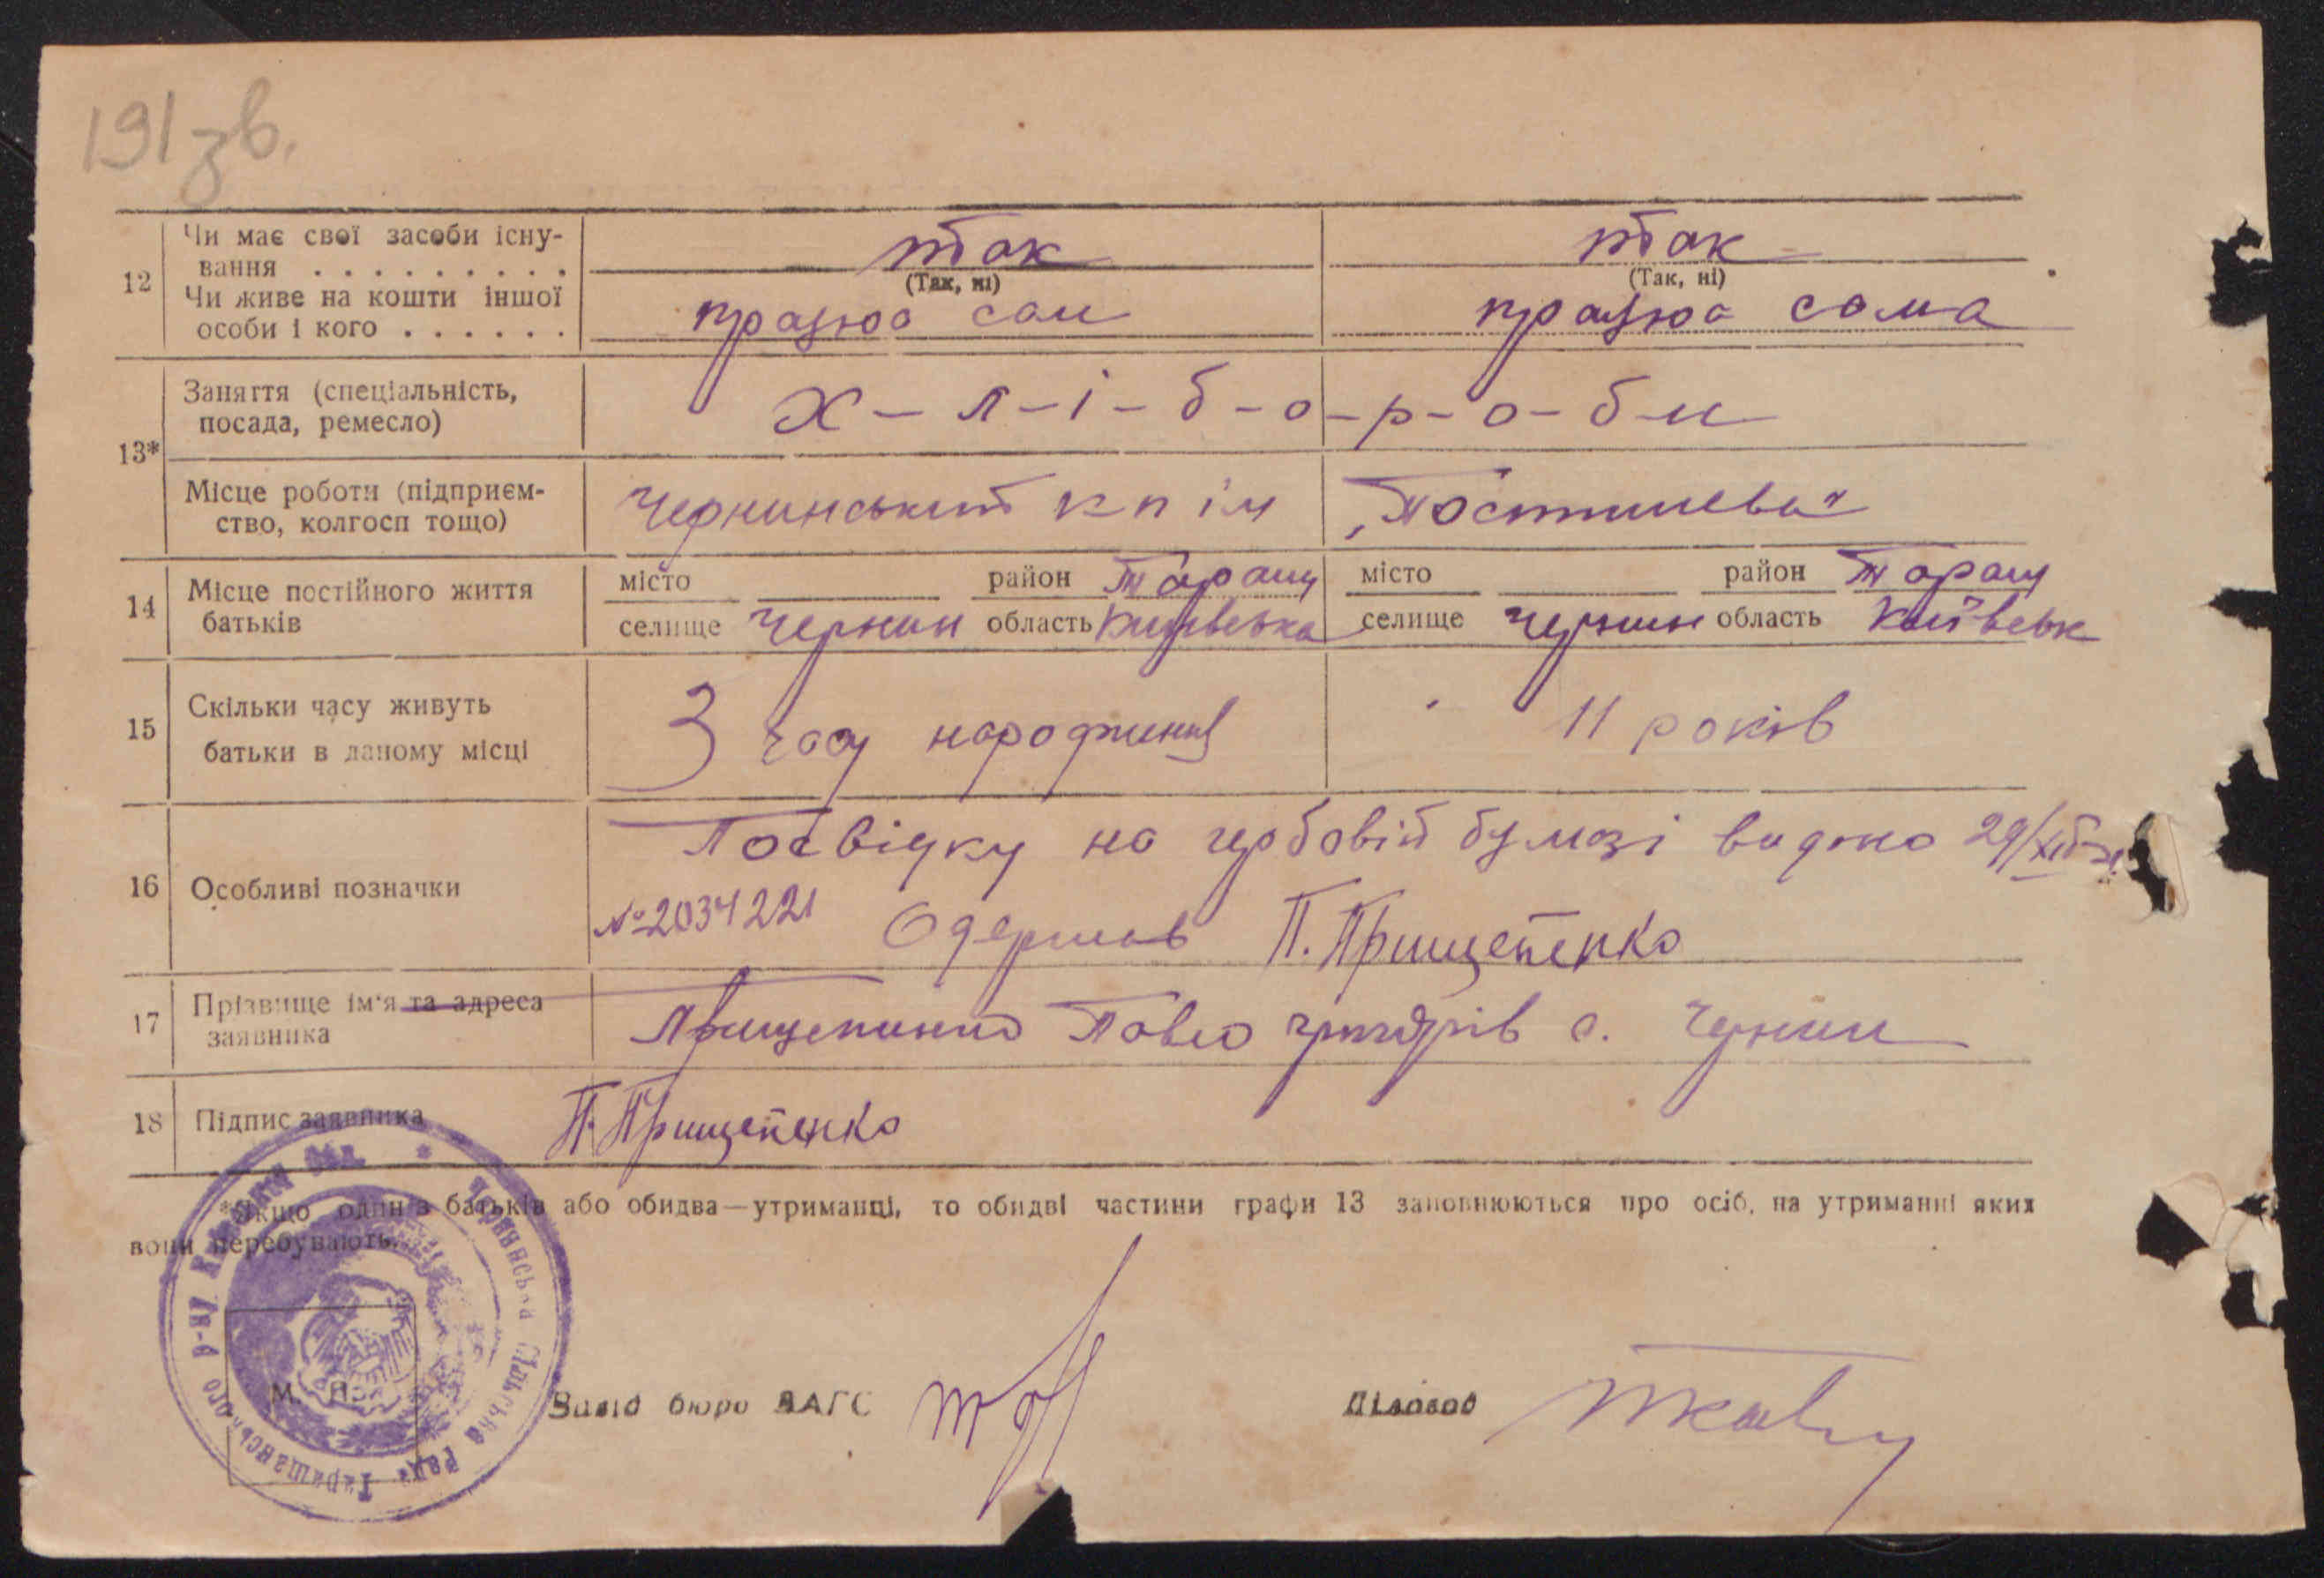 191 зв.
12 Чи має свої засоби існу-
вання . . . . . . . . . . так так
(Так, ні) (Так, ні)
Чи живе на кошти іншої
особи і кого . . . . . . працюа сам працюа сама
13* Заняття (спеціальність,
посада, ремесло) х-л-і-б-о-р-о-б-и
Місце роботи (підприєм-
ство, колгосп тощо) Чернинський кп ім „Постишева"
14 Місце постійного життя
батьків
місто район Таращ місто район Таращ
селище Чернин область Київська селище Чернин область Київськ
15 Скільки часу живуть
батьки в даному місці З часу народження 11 років
16 Особливі позначки Посвідку на гербовій бумазі видано 29/XII
№ 2034221 Одержав П. Прищепенко
17 Прізвище ім'я та адреса
заявника Прищепенко Павло Григорів с. Чернин
18 Підпис заявника П. Прищепенко
*Якщо один з батьків або обидва—утриманці, то обидві частини графи 13 заповнюються про осіб, на утриманні яких
вони перебувають.
Чернинська Сільська Рада Таращанського р-ну
М. П.
Завід бюро ЗАГС Діловод